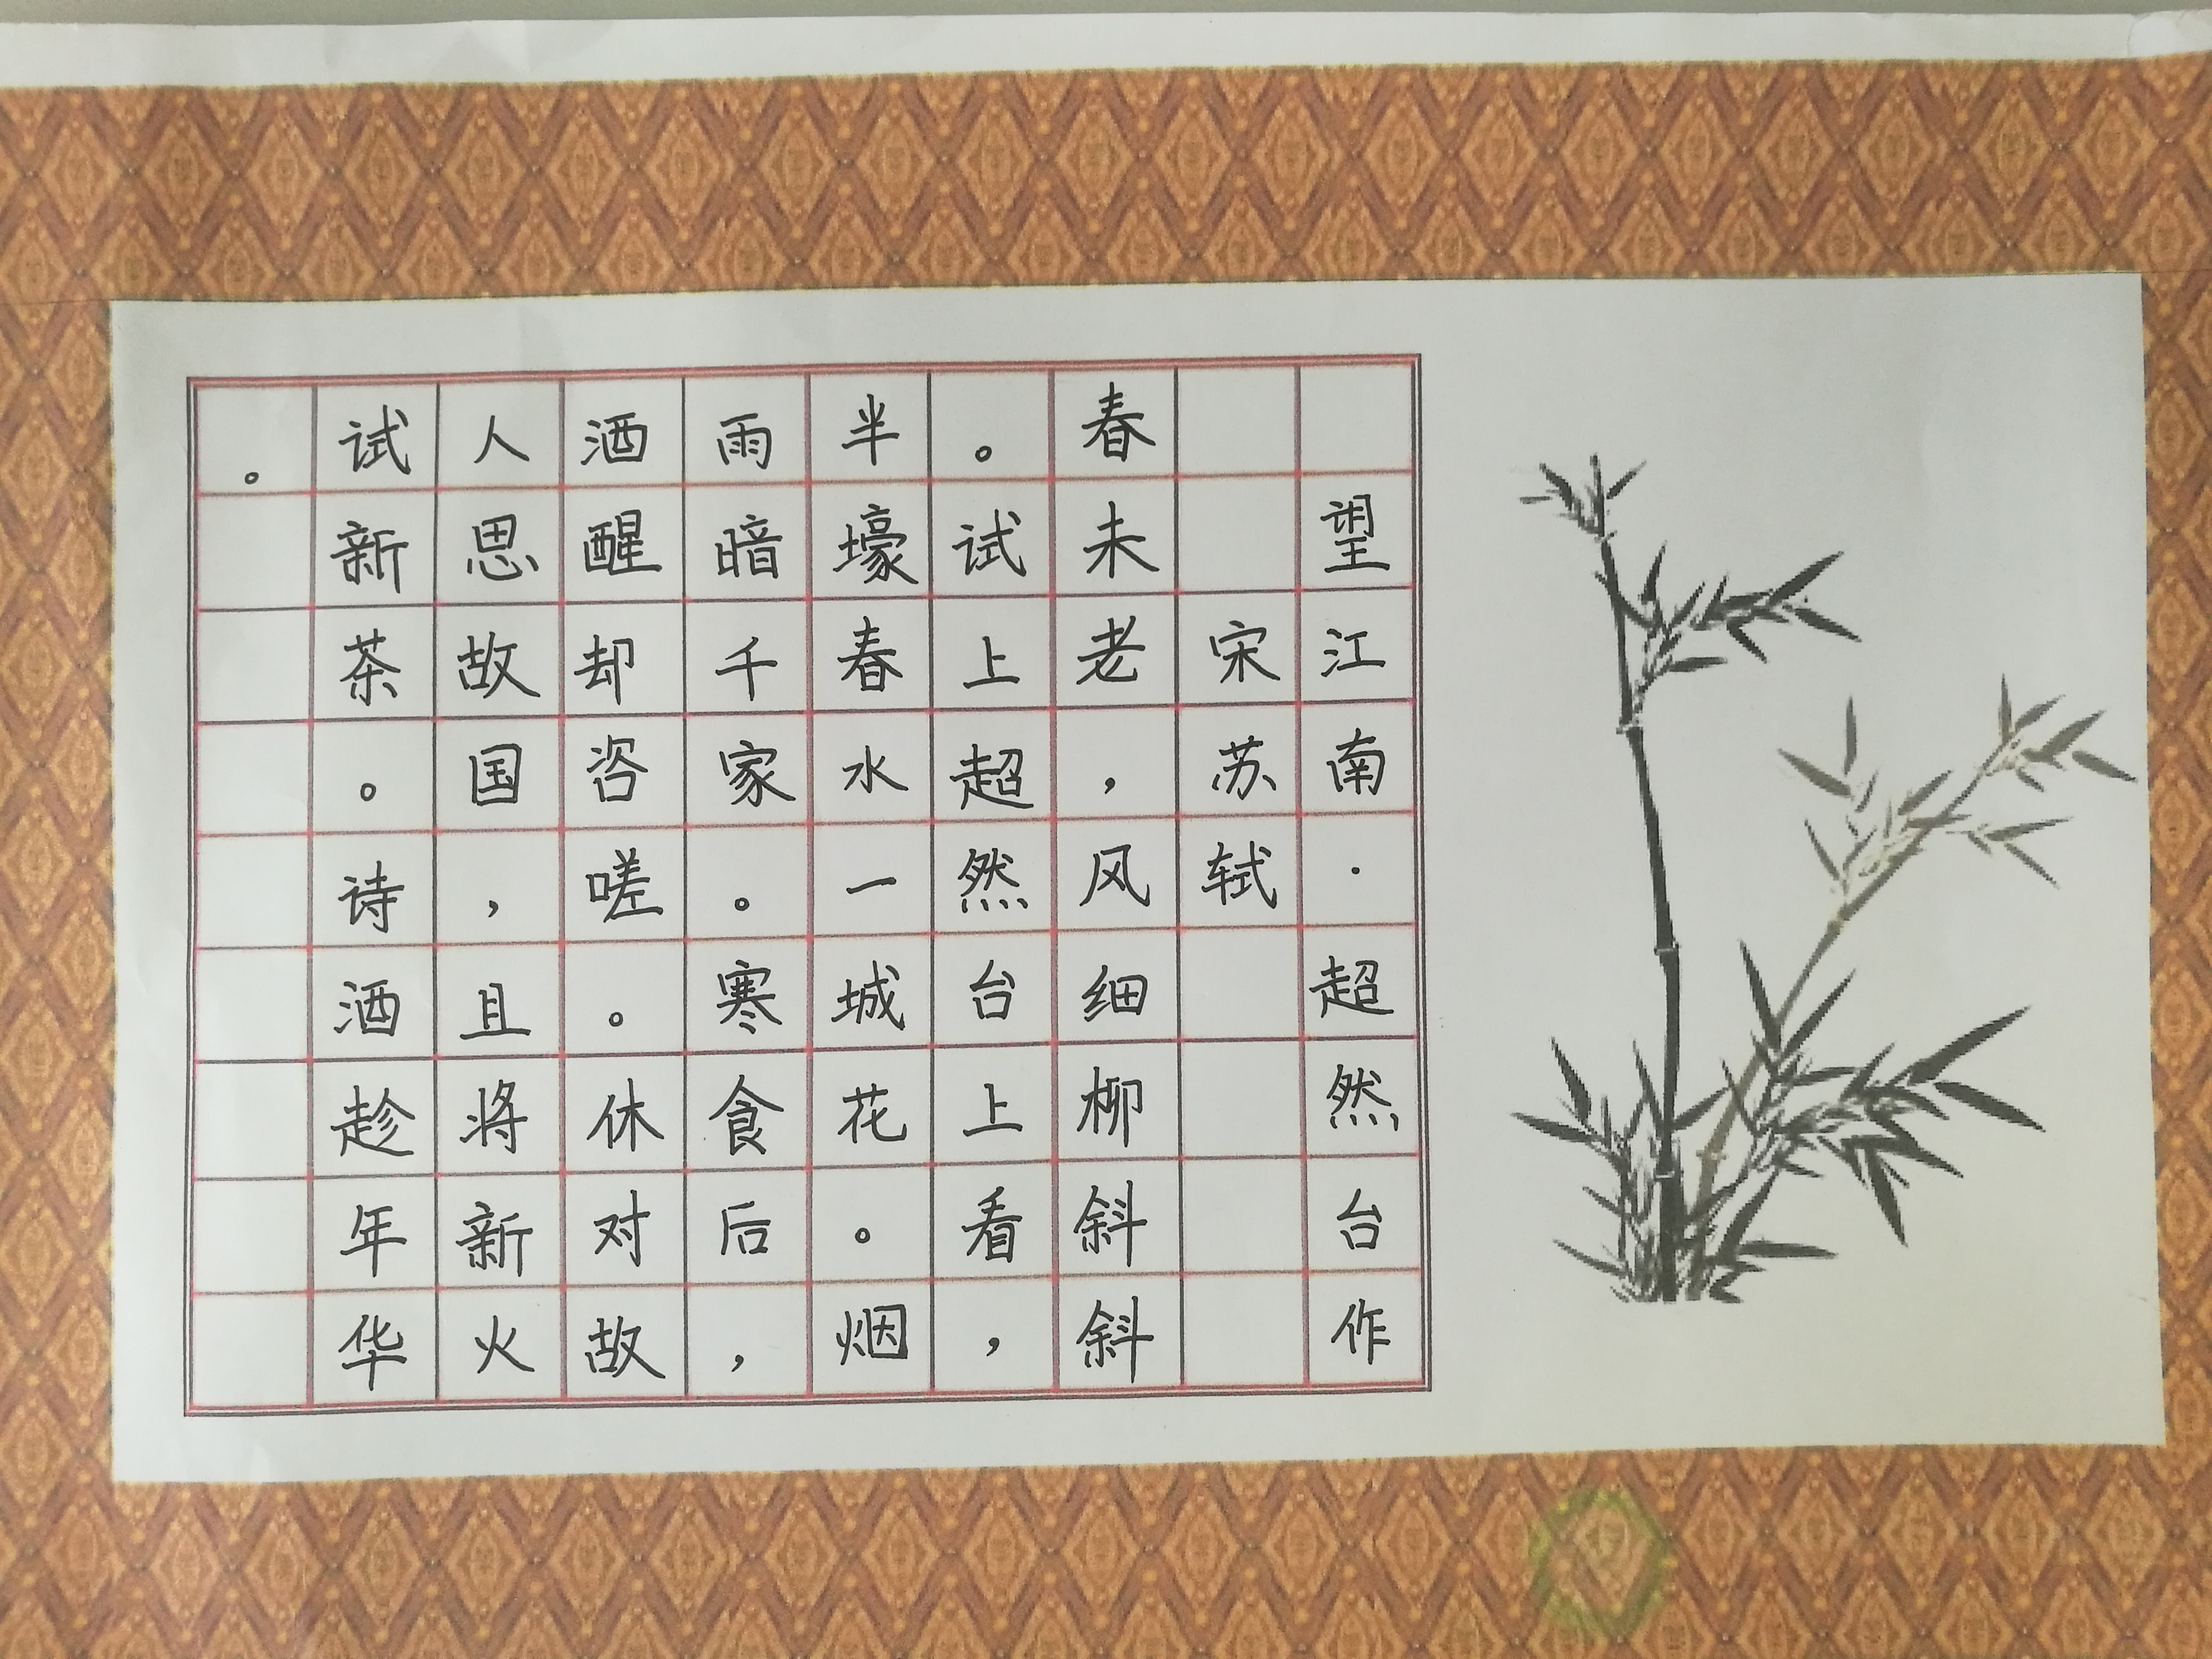 望江南·超然台作
宋苏轼
春未老，风细柳斜斜
。试上超然台上看，
半壕春水一城花。烟
雨暗千家。寒食后，
酒醒却咨嗟。休对故
人思故国，且将新火
试新茶。诗酒趁年华
。